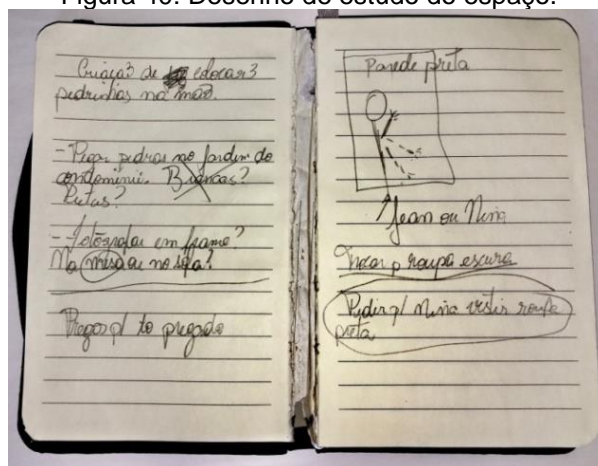 Figura 40: Desenho de estudo do espaço.
de colocar 3
pedrinhas na mão.
- Pegar pedras no jardim do
condomínio. Brancas?
Pretas?
- Fotografar em frame?
Na mesa ou no sofá?
Pregar p/ to pregado
Parede preta
Jean ou Nina
Trocar p roupa escura
Pedir p/ Nina vestir roupa
preta